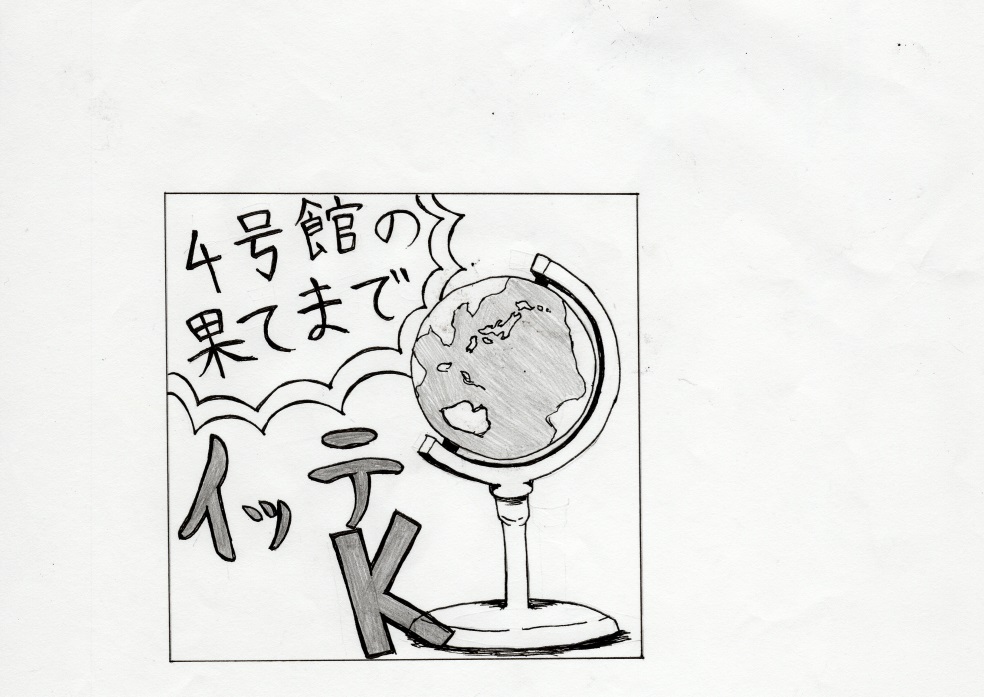 4号館の
果てまで
イッテ
K